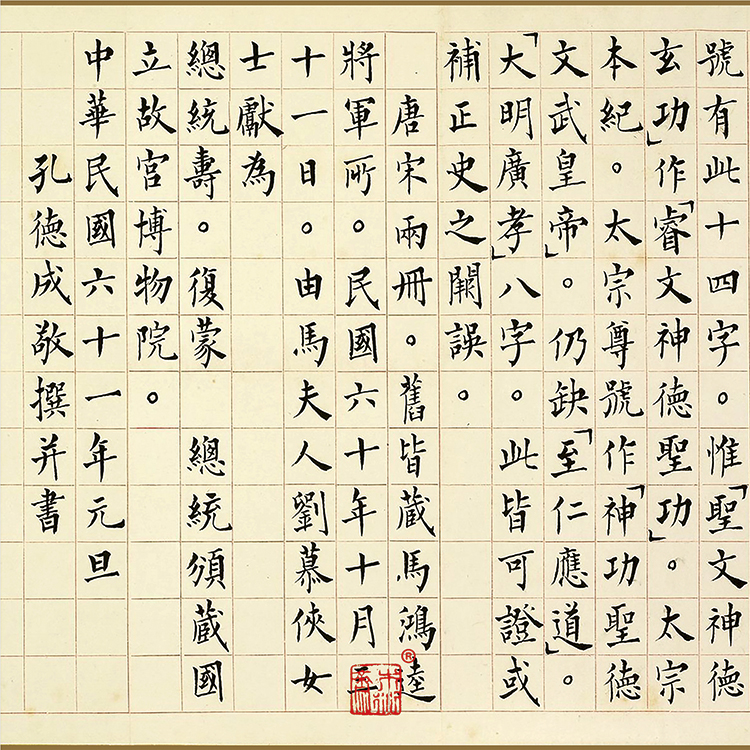 號有此十四字。惟「聖文神德
玄功」作「睿文神德聖功」。太宗
本紀。太宗尊號作「神功聖德
文武皇帝」。仍缺「至仁應道」。
「大明廣孝」八字。此皆可證或
補正史之闕誤。
唐宋兩冊。舊皆蔵馬鴻逵
將軍所。民國六十年十月三
十一日。由馬夫人劉慕俠女
士獻為
總統壽。復蒙 總統頒蔵國
立故宮博物院。
中華民國六十一年元旦
孔德成敬撰并書
®